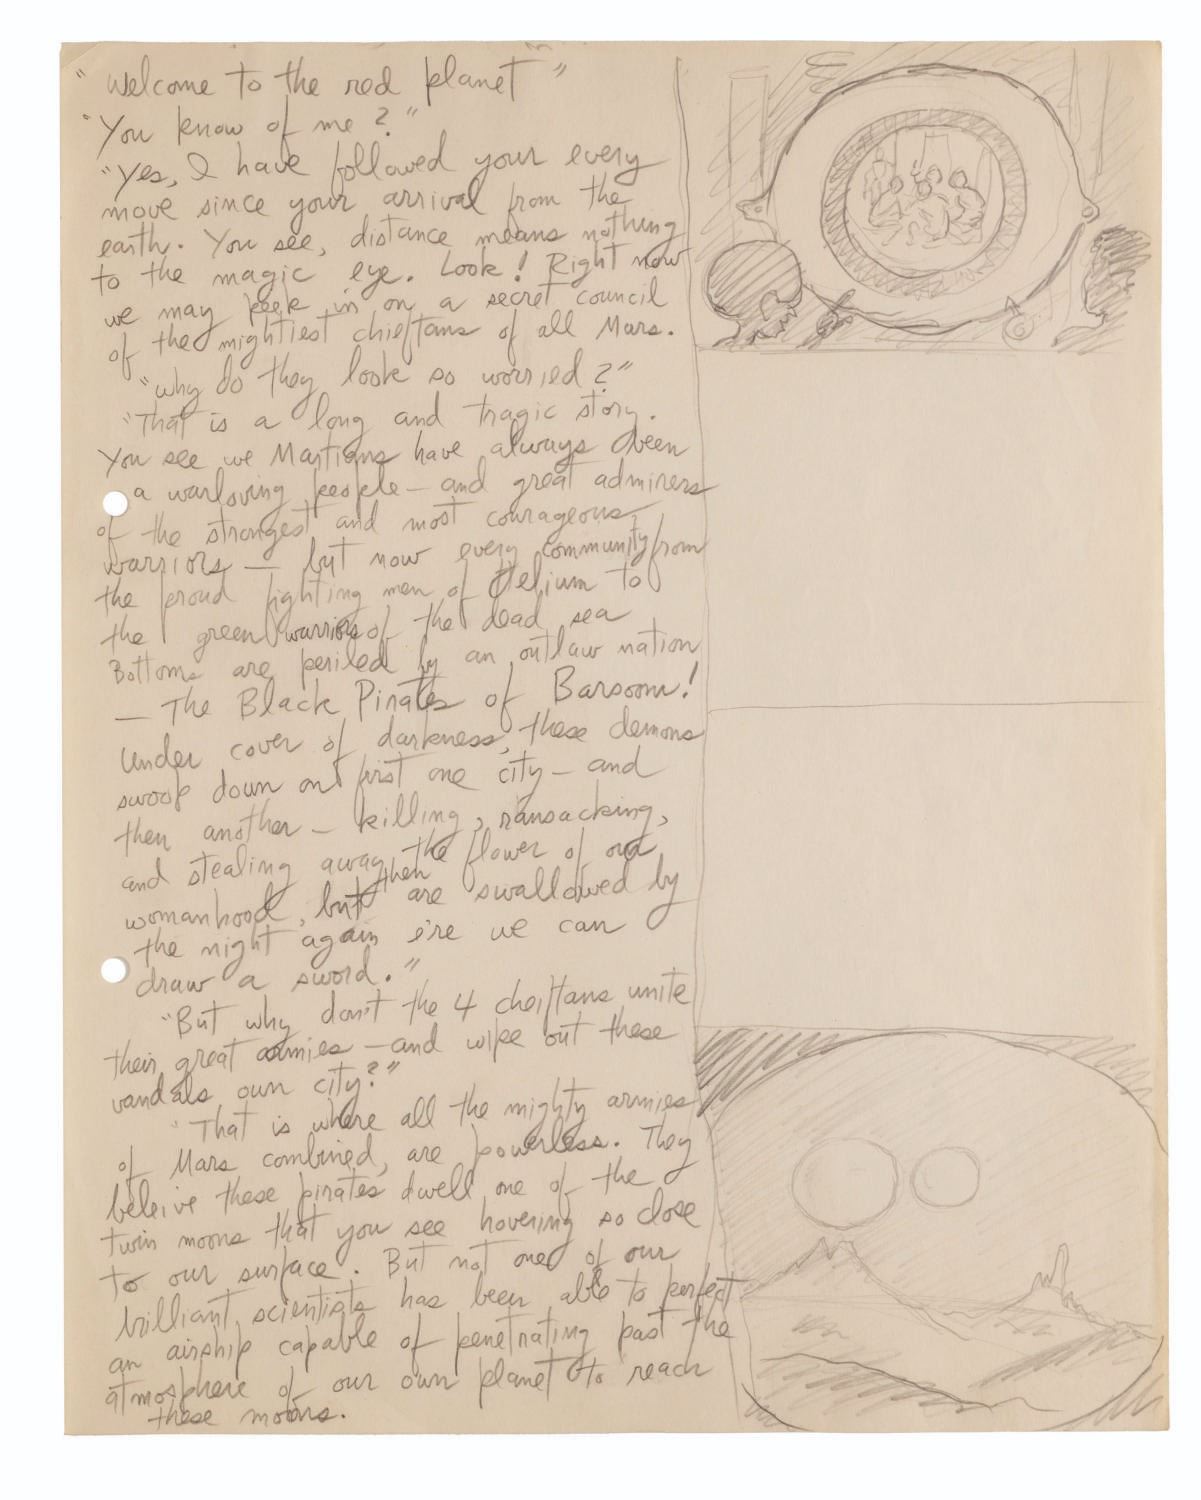 " Welcome to the red planet "
"You know of me ? "
"Yes, I have followed your every
move since your arrival from the
earth. You see, distance means nothing
to the magic eye. Look! Right now
we may peek in on a secret council
of the mightiest chieftans of all Mars.
"Why do they look so worried ? "
"That is a long and tragic story.
You see we Martians have always been
a warloving people — and great admirers
of the strongest and most courageous
warriors — but now every community from
the proud fighting men of Helium to
the green warriors of the dead sea
Bottoms are periled by an outlaw nation
— The Black Pirates of Barsoom!
Under cover of darkness, these demons
swoop down on first one city — and
then another — killing, ransacking,
and stealing away the flower of our
womanhood, but then are swallowed by
the night again e're we can
draw a sword. "
"But why don't the 4 cheiftans unite
their great armies — and wipe out these
vandals own city? "
"That is where all the mighty armies
of Mars combined, are powerless. They
beleive these pirates dwell one of the
twin moons that you see hovering so close
to our surface. But not one of our
brilliant scientists has been able to perfect
an airship capable of penetrating past the
atmosphere of our own planet to reach
these moons.